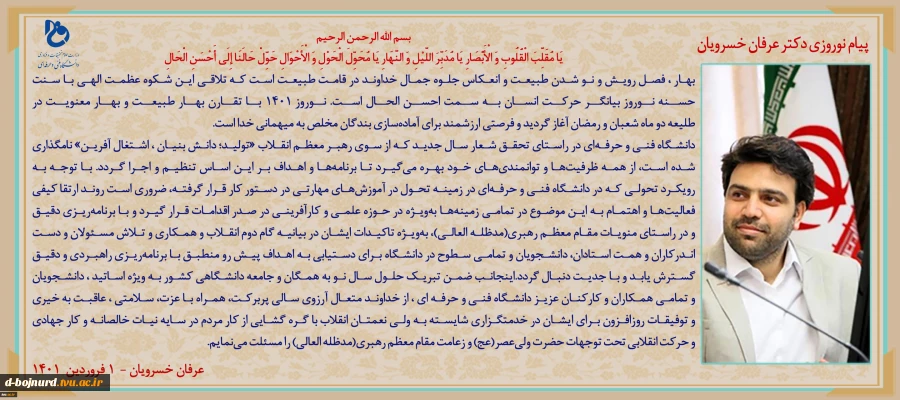 پیام نوروزی دکتر عرفان خسرویان
وزارت علوم، تحقیقات و فناوری
دانشگاه فنی و حرفه‌ای
بسم الله الرحمن الرحیم
یَا مُقَلِّبَ الْقُلُوبِ وَ الْأَبْصَارِ یَا مُدَبِّرَ اللَّیْلِ وَ النَّهَارِ یَا مُحَوِّلَ الْحَوْلِ وَ الْأَحْوَالِ حَوِّلْ حَالَنَا إِلَى أَحْسَنِ الْحَالِ
بهار، فصل رویش و نو شدن طبیعت و انعکاس جلوه جمال خداوند در قامت طبیعت است که تلاقی این شکوه عظمت الهی با سنت
حسنه نوروز بیانگر حرکت انسان به سمت احسن الحال است. نوروز ۱۴۰۱ با تقارن بهار طبیعت و بهار معنویت در
طلیعه دو ماه شعبان و رمضان آغاز گردید و فرصتی ارزشمند برای آماده‌سازی بندگان مخلص به میهمانی خدا است.
دانشگاه فنی و حرفه‌ای در راستای تحقق شعار سال جدید که از سوی رهبر معظم انقلاب «تولید؛ دانش بنیان ، اشتغال آفرین» نامگذاری
شده است، از همه ظرفیت‌ها و توانمندی‌های خود بهره می‌گیرد تا برنامه‌ها و اهداف بر این اساس تنظیم و اجرا گردد. با توجه به
رویکرد تحولی که در دانشگاه فنی و حرفه‌ای در زمینه تحول در آموزش‌های مهارتی در دستور کار قرار گرفته، ضروری است روند ارتقا کیفی
فعالیت‌ها و اهتمام به این موضوع در تمامی زمینه‌ها به‌ویژه در حوزه علمی و کارآفرینی در صدر اقدامات قرار گیرد و با برنامه‌ریزی دقیق
و در راستای منویات مقام معظم رهبری(مدظله العالی)، به‌ویژه تاکیدات ایشان در بیانیه گام دوم انقلاب و همکاری و تلاش مسئولان و دست
اندرکاران و همت استادان، دانشجویان و تمامی سطوح در دانشگاه برای دستیابی به اهداف پیش رو منطبق با برنامه‌ریزی راهبردی و دقیق
گسترش یابد و با جدیت دنبال گردد.اینجانب ضمن تبریک حلول سال نو به همگان و جامعه دانشگاهی کشور به ویژه اساتید ، دانشجویان
و تمامی همکاران و کارکنان عزیز دانشگاه فنی و حرفه ای ، از خداوند متعال آرزوی سالی پربرکت، همراه با عزت، سلامتی ، عاقبت به خیری
و توفیقات روزافزون برای ایشان در خدمتگزاری شایسته به ولی نعمتان انقلاب با گره گشایی از کار مردم در سایه نیات خالصانه و کار جهادی
و حرکت انقلابی تحت توجهات حضرت ولی‌عصر(عج) و زعامت مقام معظم رهبری(مدظله العالی) را مسئلت می‌نمایم.
عرفان خسرویان - ۱ فروردین ۱۴۰۱
d-bojnurd.tvu.ac.ir